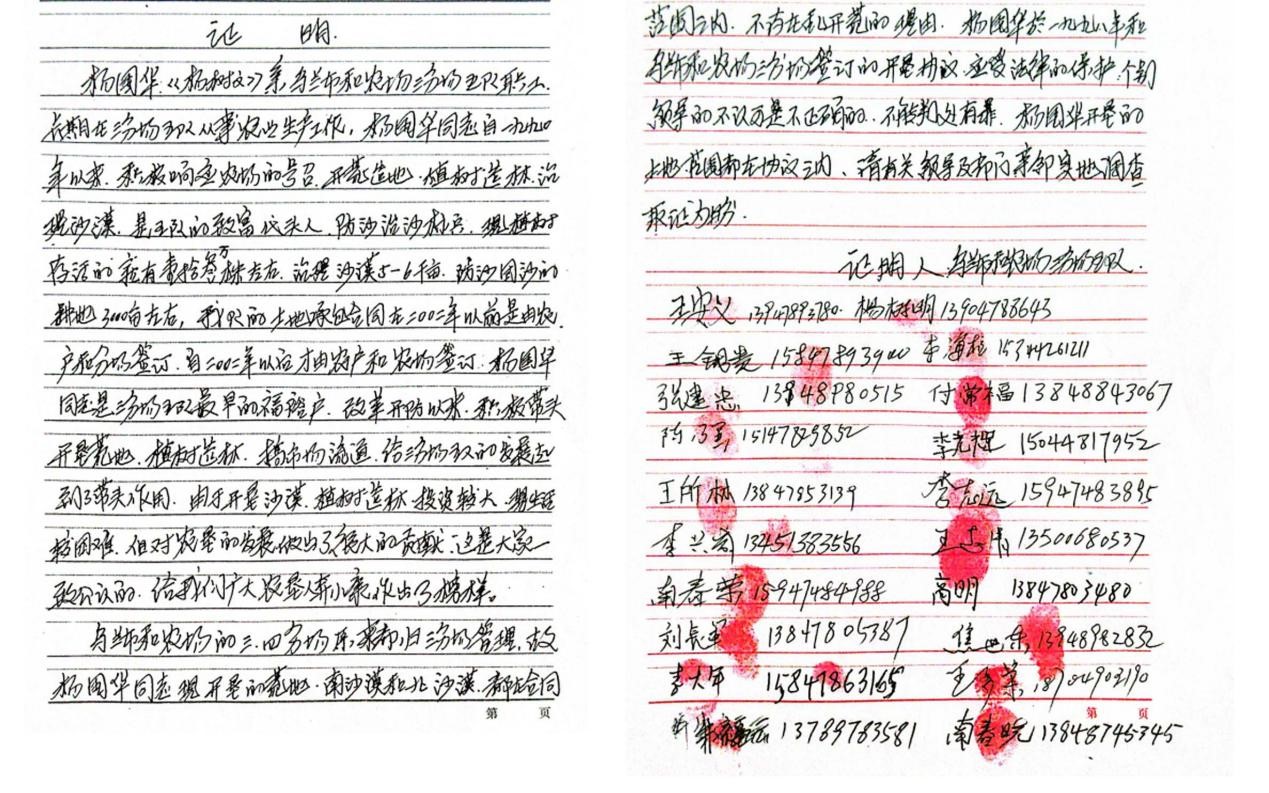 证 明
杨国华《杨树文》系乌兰布和农场三分场五队职工.
长期在三分场五队从事农业生产工作, 杨国华同志自一九九〇
年以来. 积极响应农场的号召. 开荒造地. 植树造林. 治
理沙漠. 是五队的致富代头人. 防沙治沙标兵. 现植树
存活的就有壹拾叁万株左右. 治理沙漠5-6千亩. 防沙固沙的
耕地3000亩左右, 我队的土地承包合同在二〇〇二年以前是由农.
户和分场签订. 自二〇〇二年以后才由农户和农场签订. 杨国华
同志是三分场五队最早的福裕户. 改革开放以来. 积极带头
开垦荒地. 植树造林. 搞市场流通. 给三分场五队的发展起
到了带头作用. 由于开垦沙漠. 植树造林. 投资较大. 现生活
较困难. 但对农垦的发展做出了很大的贡献. 这是大家一
致公认的. 给我们广大农垦人奔小康. 作出了榜样。
乌兰布和农场的三.四分场原来都归三分场管理. 故
杨国华同志现开垦的荒地. 南沙漠和北沙漠. 都在合同
第 页
范围之内. 不存在乱开荒的理由. 杨国华於一九九八年和
乌兰布和农场三分场签订的开垦协议. 应受法律的保护. 个别
领导的不认可是不正确的. 不能判处有罪. 杨国华开垦的
土地. 范围都在协议之内、请有关领导及部门来部实地调查
取证为盼.
证明人 乌兰布和农场三分场五队.
王安义 13947893780. 杨树明 13904788643
王银贵 15847893900 李海柱 15344261211
张建忠 13848980515 付常福 13848843067
陈 15147829852 李光辉 15044817952
王所林 13847853139 李志远 15947483895
李兴 13451383556 王志清 13500680537
南春荣 15947484988 高明 13847803480
刘长军 13847805387 焦 东 13948982832
李大年 15847863165 王 荣 18704902190
福元 13789783581 南春 13848745345
第 页